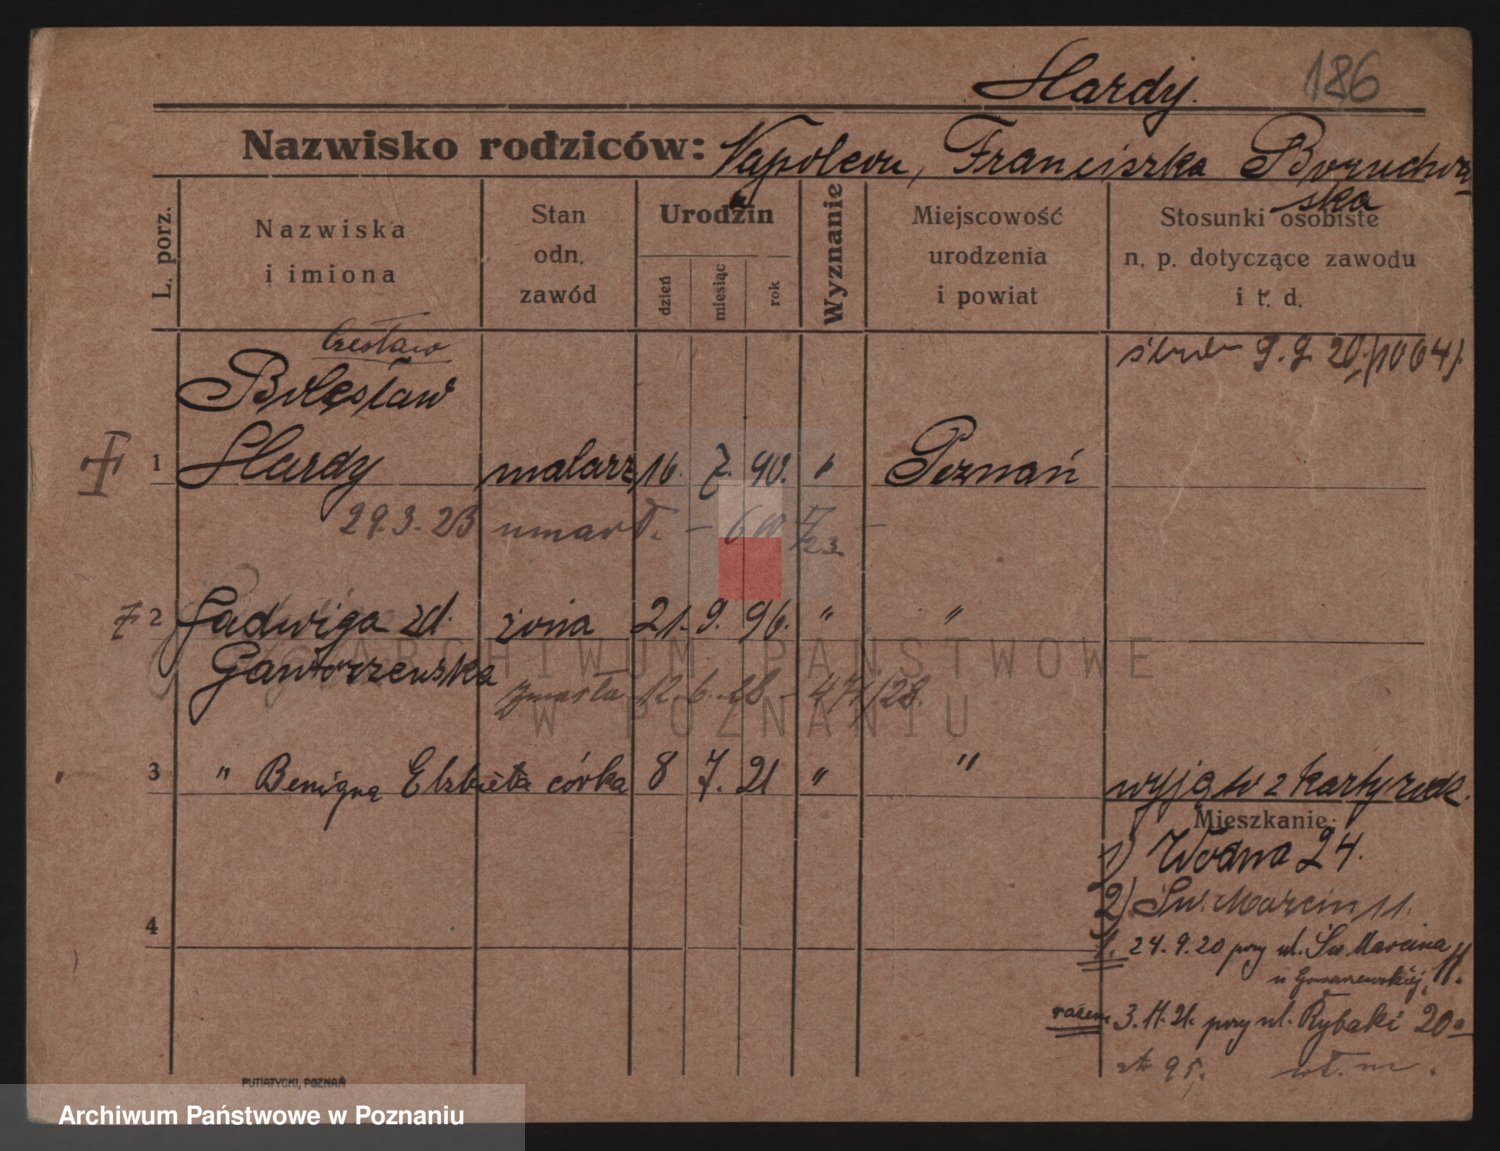 Hardy. 186
Nazwisko rodziców: Napoleon, Franciszka Boruchow-
ska
L. porz.
Nazwiska
i imiona
Stan
odn.
zawód
Urodzin
dzień
miesiąc
rok
Wyznanie
Miejscowość
urodzenia
i powiat
Stosunki osobiste
n. p. dotyczące zawodu
i t. d.
Czesław
ślub 9.9.20.(1064).
Bolesław
1 Hardy malarz 16. 7. 90. Poznań
29.3.23 umarł. - 610 /23 -
2 Jadwiga zd. żona 21. 9. 96. " "
Gaworzewska
zmarła 12.6.28 - 471/28.
3 " Benigna Elżbieta córka 8 7. 21 " "
wyjęto z karty rodz.
Mieszkanie:
1) Wodna 24.
2) Św. Marcin 11.
4
1. 24.9.20 przy ul. Św. Marcina 11.
razem 3.11.21. przy ul. Rybaki 20a
wł. m.
PUTIATYCKI, POZNAŃ
ARCHIWUM PAŃSTWOWE
W POZNANIU
Archiwum Państwowe w Poznaniu